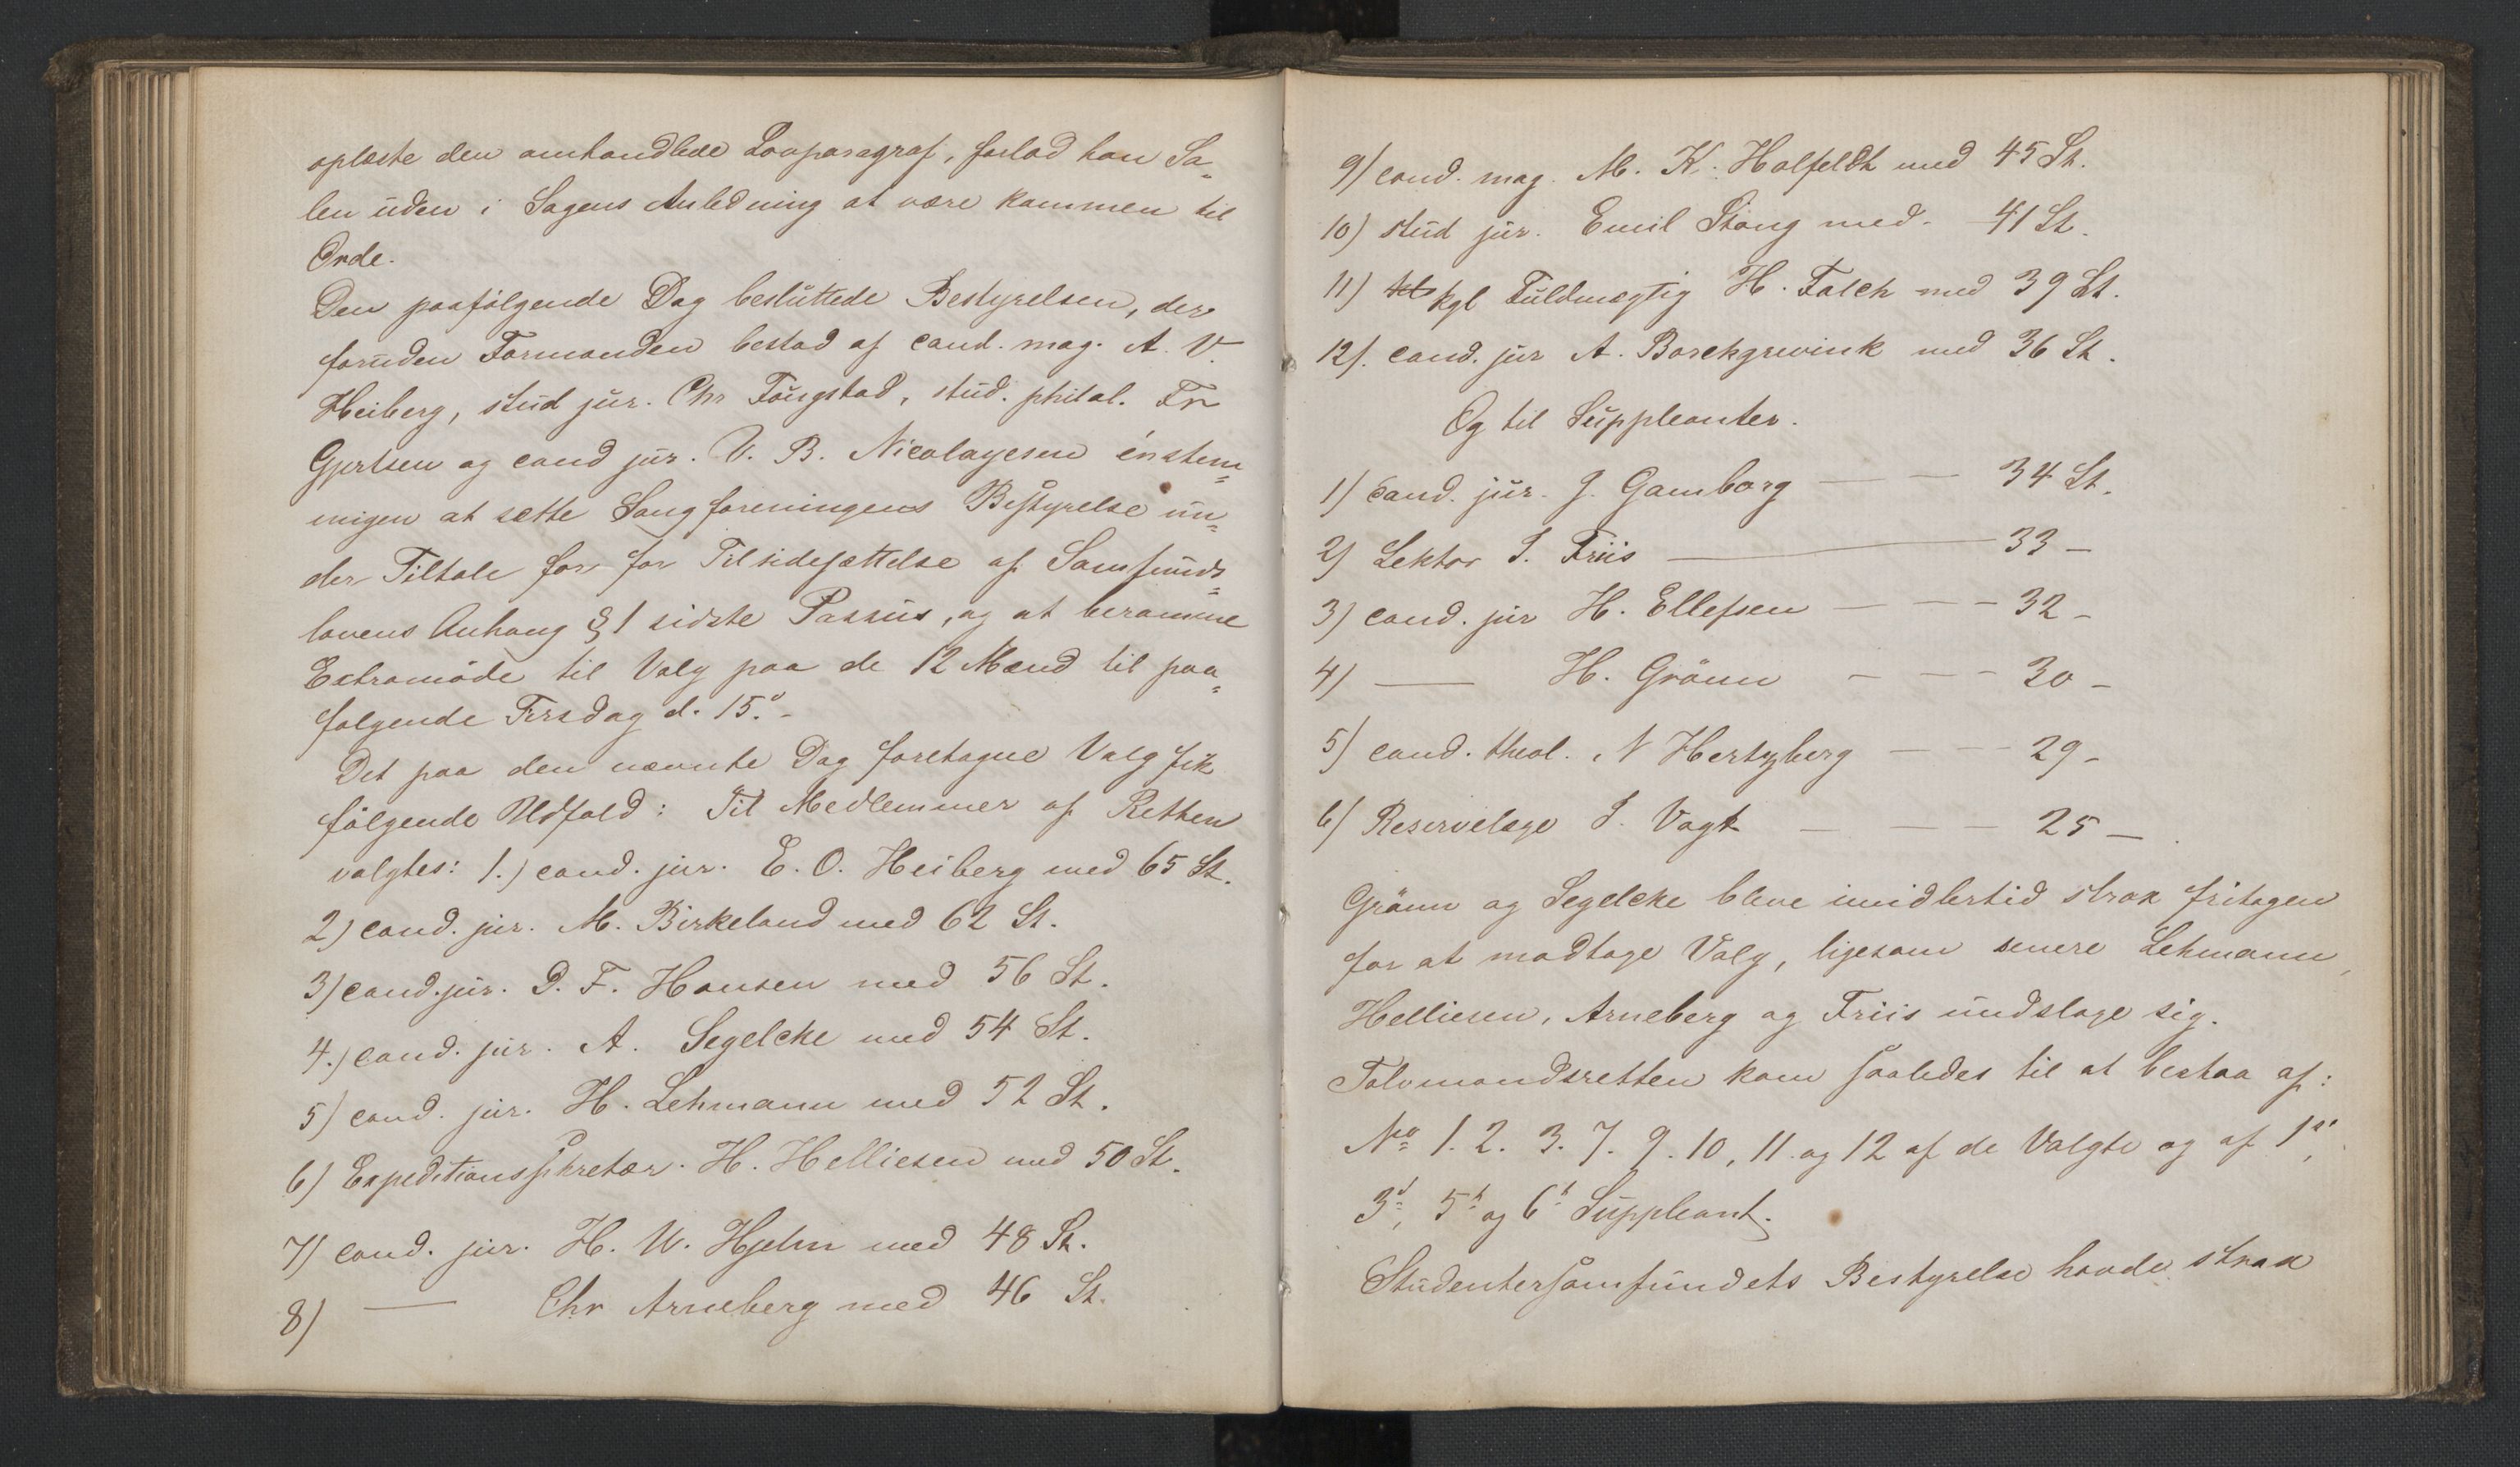 oplæste den omhandlede Lovparagraf, forlod han Sa-
len uden i Sagens Anledning at være kommen til
Orde.
Den paafølgende Dag besluttede Bestyrelsen, der
foruden Formanden bestod af cand. mag. A. V.
Heiberg, stud jur. Chr Fougstad, stud. philol. Fr
Gjertsen og cand jur. V. B. Nicolaysen énstem-
migen at sætte Sangforeningens Bestyrelse un-
der Tiltale for for Tilsidesættelse af Samfunds-
lovens Anhang § 1 sidste Passus, og at beramme
Extramöde til Valg paa de 12 Mænd til paa-
følgende Tirsdag d. 15.d -
Det paa den nævnte Dag foretagne Valg fik
følgende Udfald: Til Medlemmer af Retten
valgtes: 1.) cand. jur. E. O. Heiberg med 65 St.
2) cand. jur. M. Birkeland med 62 St.
3) cand. jur. D. F. Hansen med 56 St.
4.) cand. jur. A. Segelcke med 54 St.
5) cand. jur. H. Lehmann med 52 St.
6) Expeditionssekretær. H. Helliesen med 50 St.
7) cand. jur. H. U. Hjelm med 48 St.
8) — Chr Arneberg med 46 St.
9) cand. mag. M. K. Holfeldt med 45 St.
10) stud jur. Emil Stang med - 41 St.
11) kgl Fuldmægtig H. Falch med 39 St.
12). cand. jur A. Borchgrevink med 36 St.
Og til Suppleanter.
1) cand. jur. J. Gamborg — — 34 St.
2) Lektor J. Friis — 33 —
3) cand. jur H. Ellefsen — — — 32 -
4) — H. Grönn — — — 30 -
5) cand. theol. N Hertzberg — — 29 -
6) Reservelæge J. Vogt — — — 25 — .
Grönn og Segelcke bleve imidlertid strax fritagen
for at modtage Valg, ligesom senere Lehmann,
Helliesen, Arneberg og Friis undsloge sig.
Tolvmandsretten kom saaledes til at bestaa af:
No 1. 2. 3. 7. 9. 10, 11. og 12 af de Valgte og af 1ste,
3d, 5t og 6t Suppleant.
Studentersamfundets Bestyrelse havde strax